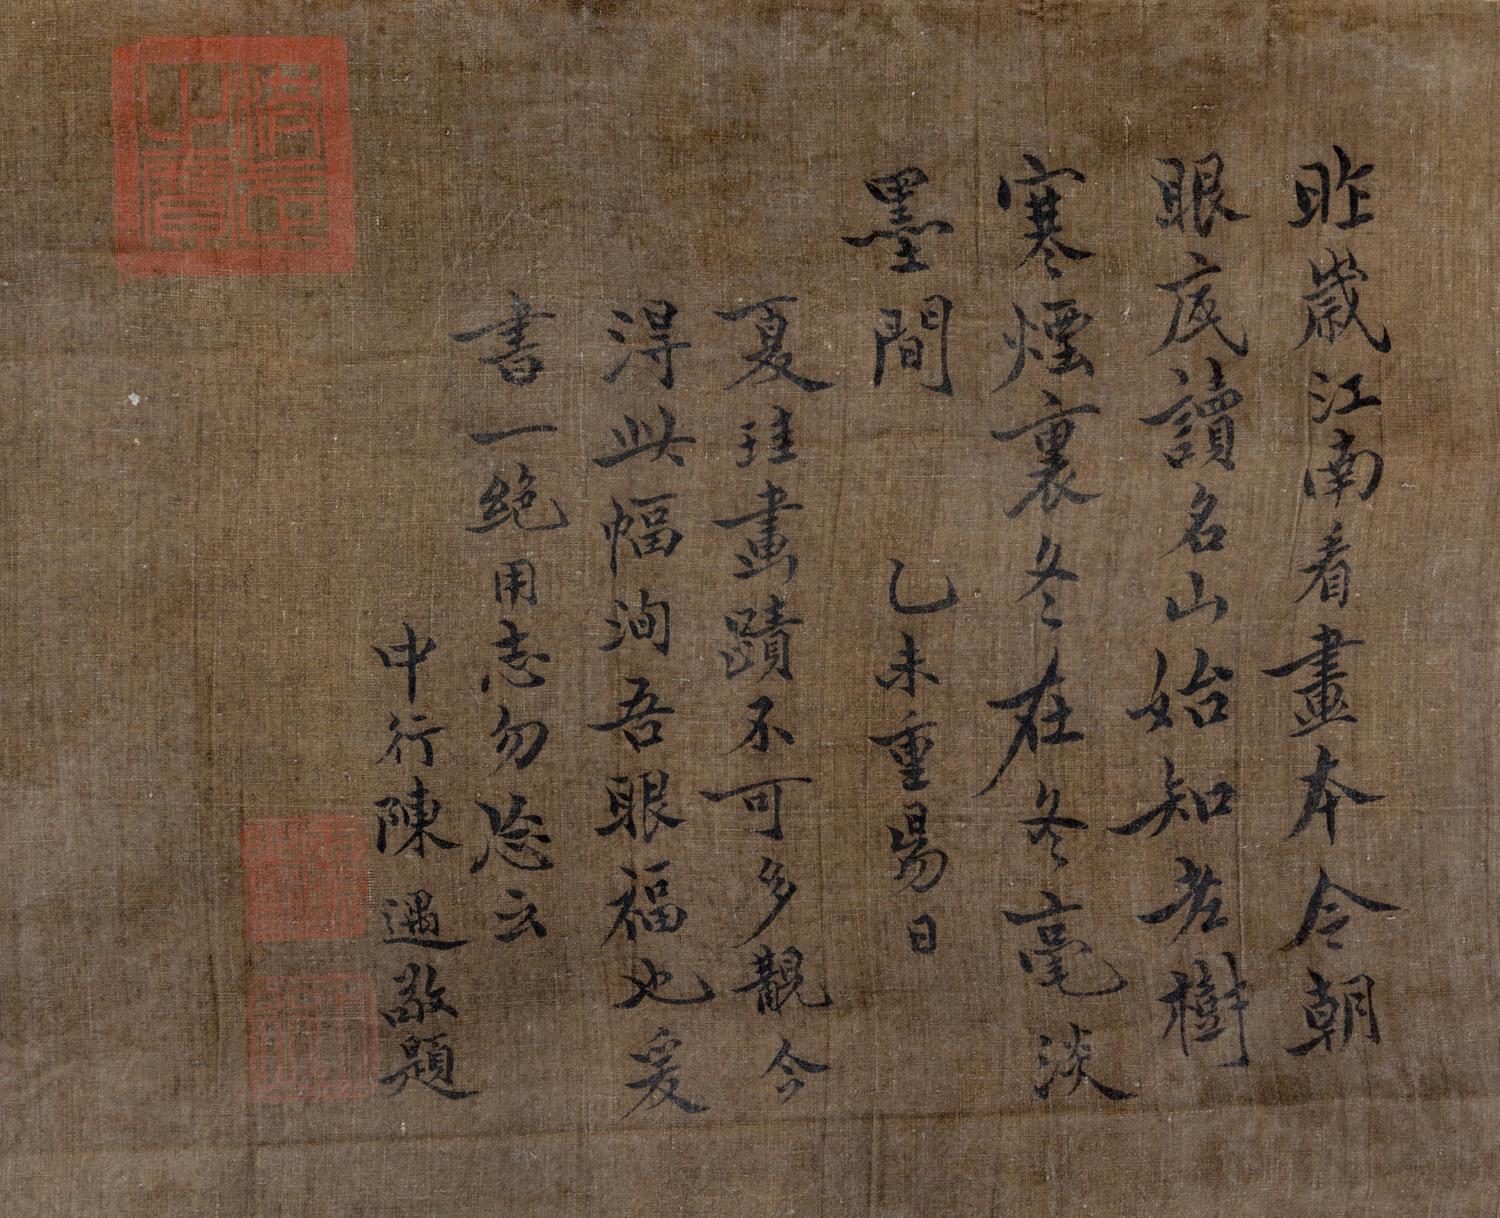 昨歲江南看畫本今朝
眼底讀名山始知老樹
寒煙裏冬在冬毫淡
墨間 乙未重昜日
夏珪畫蹟不可多觀今
淂此幅洵吾眼福也爰
書一絶用志勿諼云
中行陳遇敬題